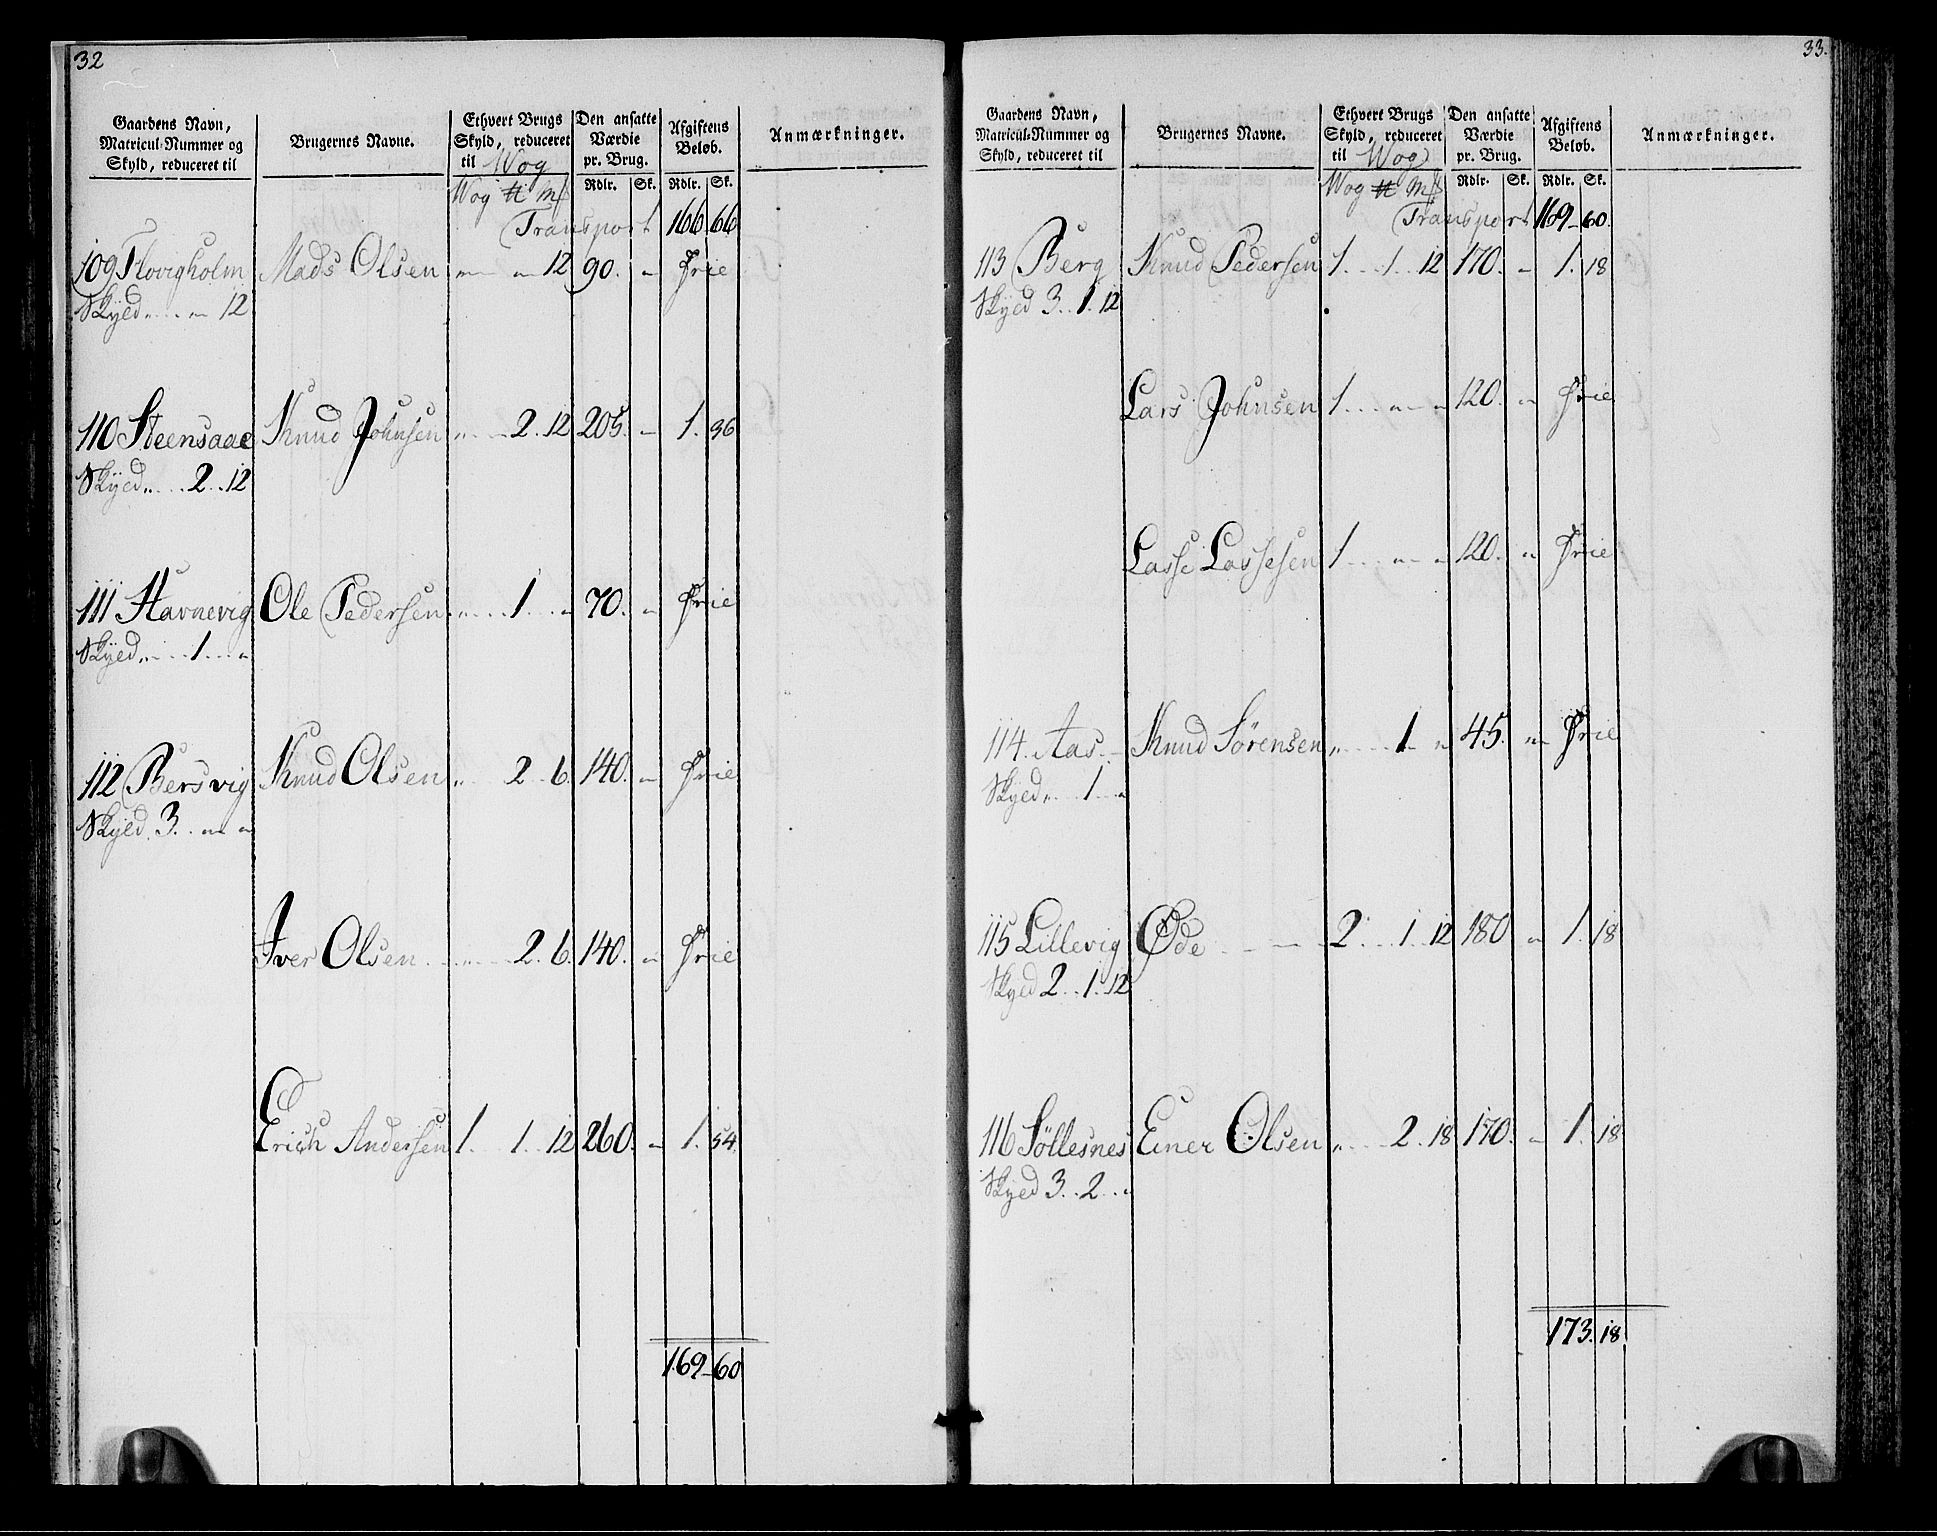 32
Gaardens Navn, Matricul-Nummer og Skyld, reduceret til
Brugernes Navne.
Ethvert Brugs Skyld, reduceret til Wog
Den ansatte Værdie pr. Brug.
Afgiftens Beløb.
Anmærkninger.
Wog ℔ mf Rdlr. Sk. Rdlr. Sk.
Transport 166 66
109 Flovigholm Mads Olsen " " 12 90. " Frie
Skyed " " 12
110 Steensaae Knud Johnsen " 2. 12 205. " 1. 36
Skyed " 2. 12
111 Havnevig Ole Pedersen " 1 " 70. " Frie
Skyed " 1 "
112 Bersvig Knud Olsen " 2. 6. 140. " Frie
Skyed 3. " "
Iver Olsen " 2. 6. 140. " Frie
Erich Andersen 1. 1. 12 260. " 1. 54.
169 60
33.
Gaardens Navn, Matricul-Nummer og Skyld, reduceret til
Brugernes Navne.
Ethvert Brugs Skyld, reduceret til Wog
Den ansatte Værdie pr. Brug.
Afgiftens Beløb.
Anmærkninger.
Wog ℔ mf Rdlr. Sk. Rdlr. Sk.
Transport 169 60.
113 Berg Knud Pedersen 1. 1. 12 170. " 1. 18
Skyed 3. 1. 12
Lars Johnsen 1. " " 120. " Frie
Lasse Lassesen 1. " " 120. " Frie
114. Aas. Knud Sörensen " 1 " 45. " Frie
Skyed " 1 "
115 Lillevig Øde 2. 1. 12 180 " 1. 18
Skyed 2. 1. 12
116 Söllesnes Einer Olsen " 2. 18 170. " 1. 18
Skyed 3. 2. "
173. 18